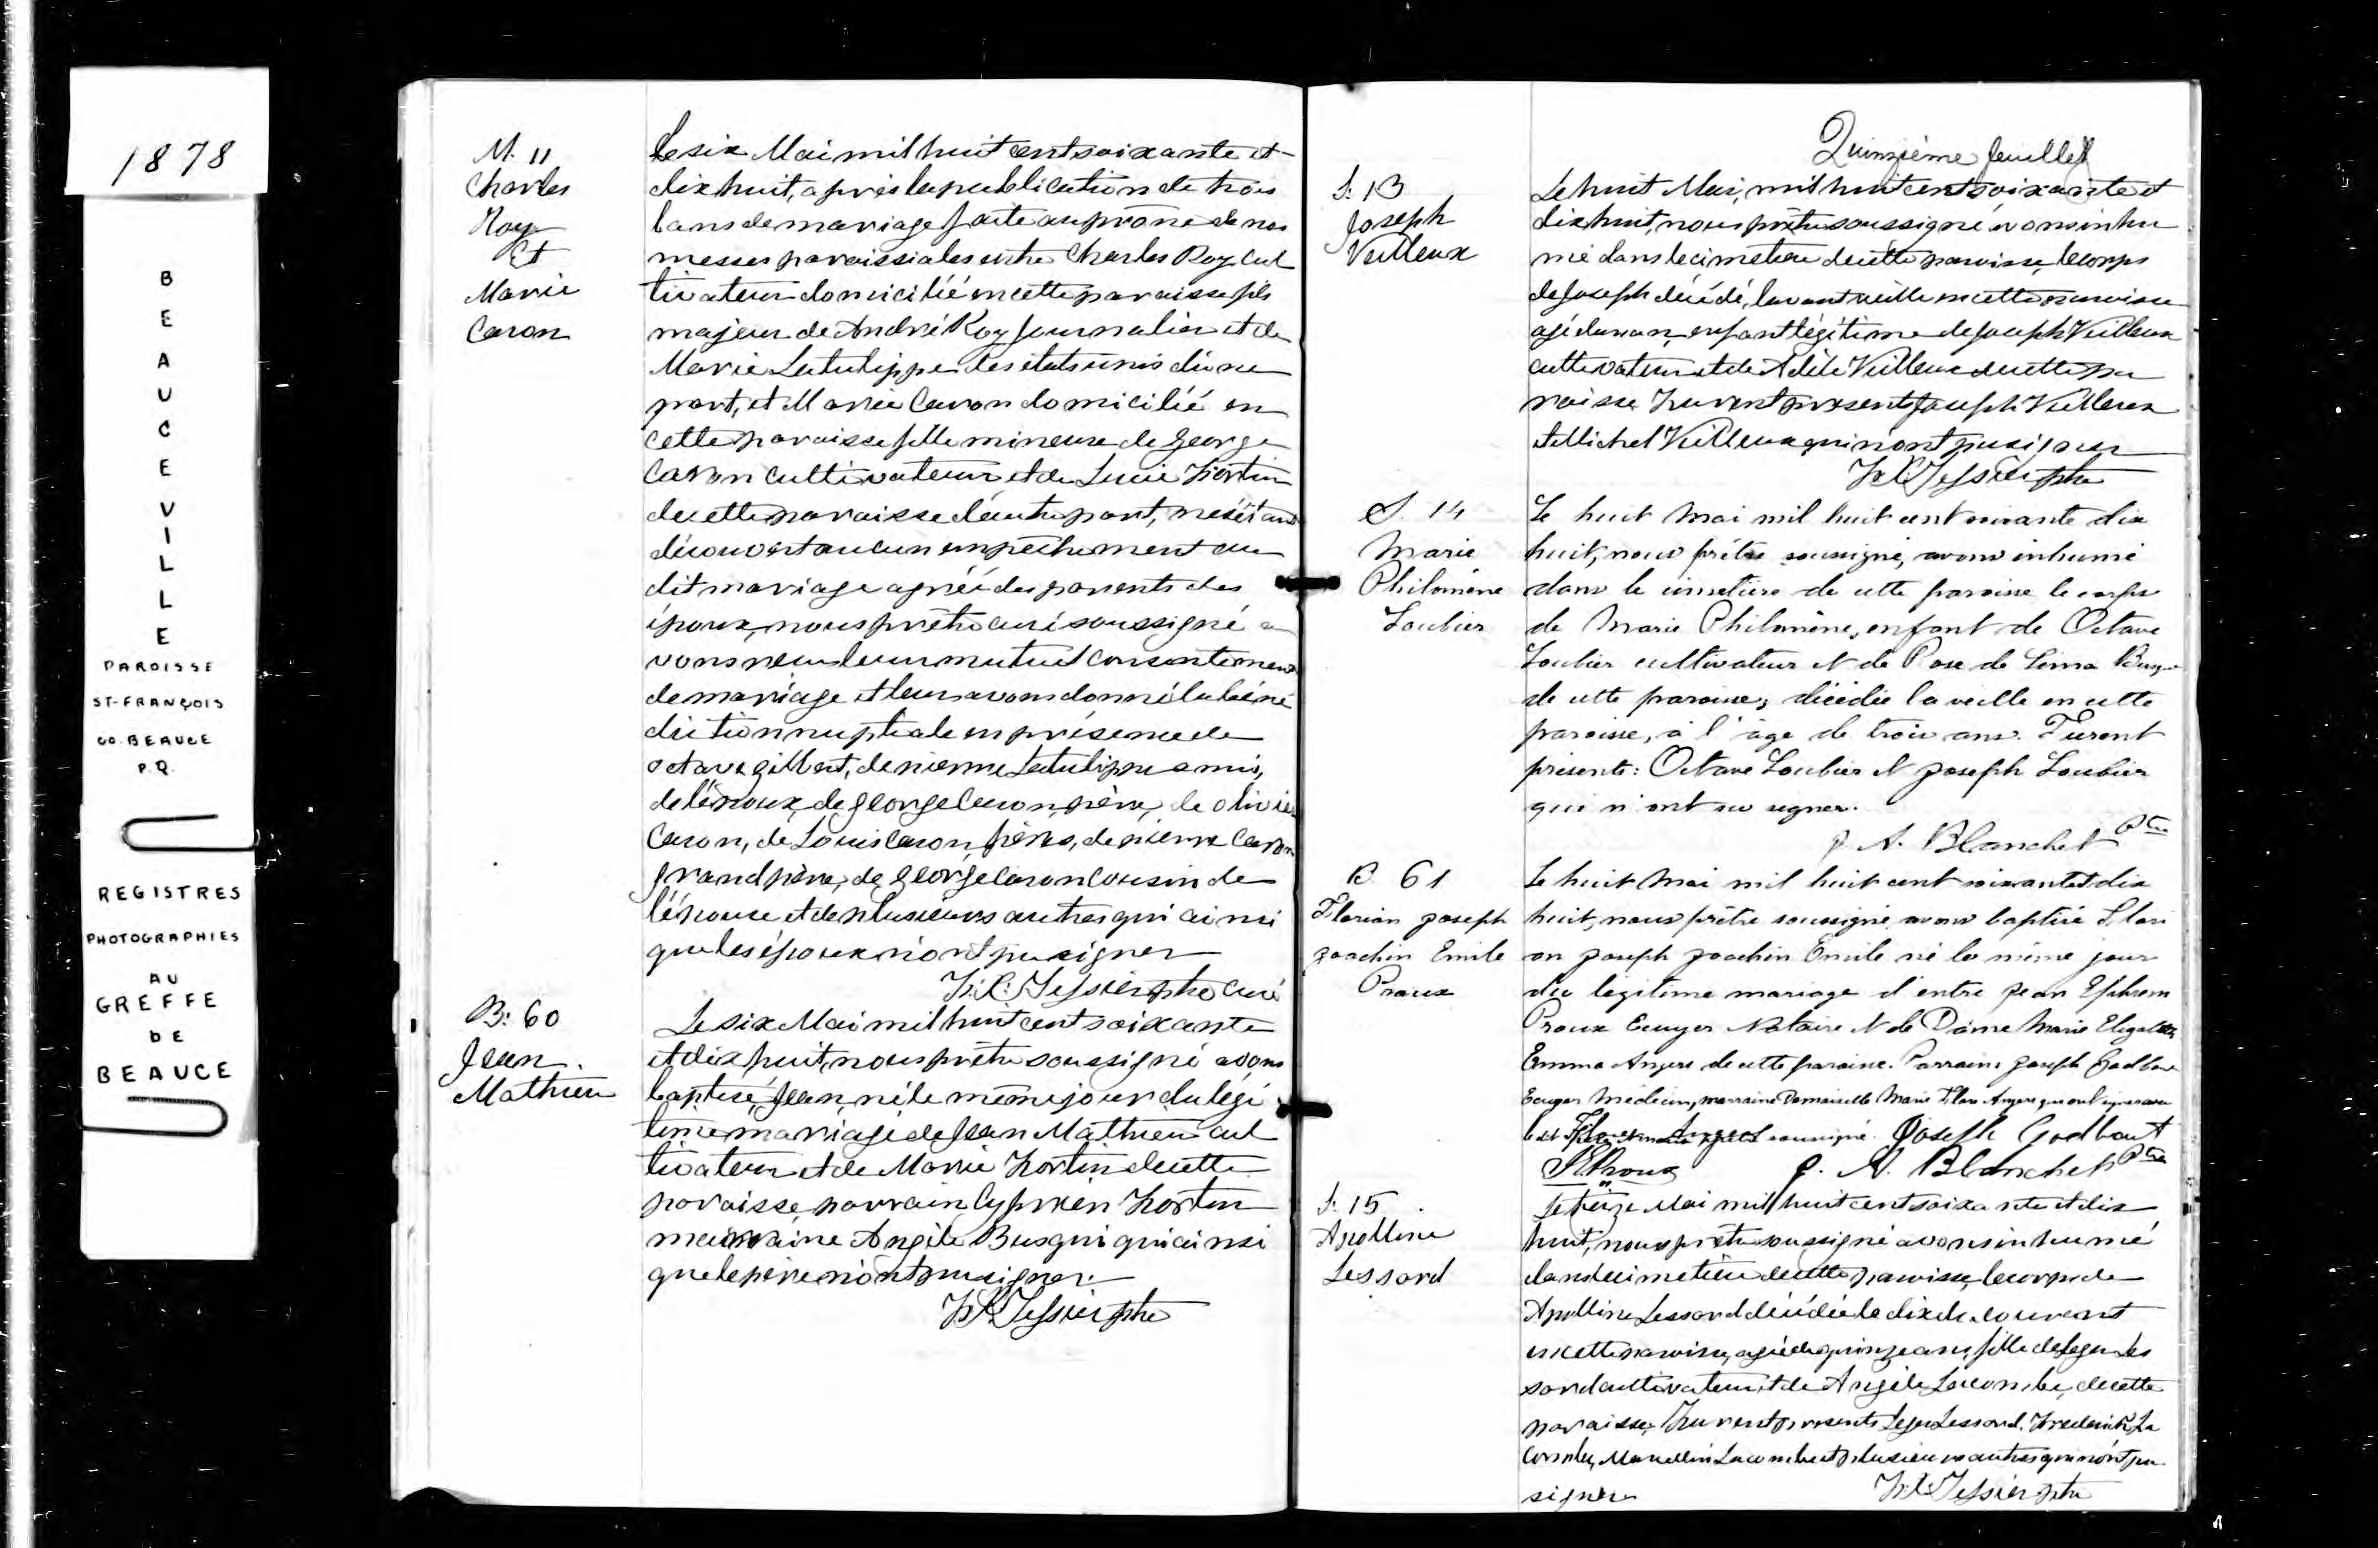 1878
BEAUCEVILLE
PAROISSE
ST-FRANÇOIS
CO. BEAUCE
P.Q.
REGISTRES
PHOTOGRAPHIES
AU
GREFFE
DE
BEAUCE
M. 11
Charles
Roy
Et
Marie
Caron
Le six Mai mil huit cent soixante et
dix huit, après la publication de trois
bans de mariage faite au prône de nos
messes paroissiales entre Charles Roy cul
tivateur domicilié en cette paroisse fils
majeur de André Roy journalier et de
Marie Latulippe des états unis d'une
part, et Marie Caron domicilié en
cette paroisse fille mineure de George
Caron cultivateur et de Lucie Fortin
de cette paroisse d'autre part, ne s'étant
découvert aucun empêchement au
dit mariage agréé des parents des
époux, nous prêtre curé soussigné a
vons reçu leur mutuel consentement
de mariage et leur avons donné la béné
diction nuptiale en présence de
octave gilbert, de pierre Latulippe amis,
de l'époux, de george Caron, père, de olivier
Caron, de Louis Caron, frères, de pierre Caron
grand père, de george Caron Cousin de
l'épouse et de plusieurs autres qui ainsi
que les époux n'ont pu signer
F. X. Tessier ptre curé
B: 60
Jean
Mathieu
Le six Mai mil huit cent soixante
et dix huit, nous prêtre soussigné avons
baptisé, Jean, né le même jour du légi
time mariage de Jean Mathieu cul
tivateur et de Marie Fortin de cette
paroisse, parrain Cyprien Fortin
marraine Angèle Busqui qui ainsi
que le père n'ont pu signer.
F. X. Tessier ptre
Quinzième feuillet
S. 13
Joseph
Veilleux
Le huit Mai, mil huit cent soixante et
dix huit, nous prêtre soussigné avons inhu
mé dans le cimetière de cette paroisse, le corps
de Joseph décédé, l'avant veille en cette paroisse
agé d'un an, enfant légitime de Joseph Veilleux
cultivateur et de Adèle Veilleux de cette pa
roisse. Furent présents Joseph Veilleux
et Michel Veilleux qui n'ont pu signer
F. X. Tessier ptre
S. 14
Marie
Philomène
Loubier
Le huit Mai mil huit cent soixante dix
huit, nous prêtre soussigné, avons inhumé
dans le cimetière de cette paroisse le corps
de Marie Philomène, enfant de Octave
Loubier cultivateur et de Rose de Lima
de cette paroisse, décédée la veille en cette
paroisse, à l'âge de trois ans. Furent
présents: Octave Loubier et Joseph Loubier
qui n'ont su signer.
J. A. Blanchet Ptre
B 61
Florian Joseph
Joachin Emile
Proux
Le huit Mai mil huit cent soixante et dix
huit, nous prêtre soussigné, avons baptisé Flori
an Joseph Joachin Emile né le même jour
du légitime mariage d'entre Jean Ephrem
Proux Ecuyer Notaire et de Dame Marie Elizabeth
Emma Angers de cette paroisse. Parrain Joseph Godbout
Ecuyer Médecin, marraine Demoiselle Marie Flore Angers qui ont signé avec
soussigné. Joseph Godbout
J. A. Blanchet Ptre
S. 15
Apolline
Lessard
Le treize Mai mil huit cent soixante et dix
huit, nous prêtre soussigné avons inhumé
dans le cimetière de cette paroisse, le corps de
Apolline Lessard décédée le dix du courant
en cette paroisse, agée de quinze ans, fille de Leger Les
sard cultivateur, et de Angèle Lacombe, de cette
paroisse, Furent présents Leger Lessard, Frederick La
combe, Marcellin Lacombe et plusieurs autres qui n'ont pu
signer
F. X. Tessier ptre